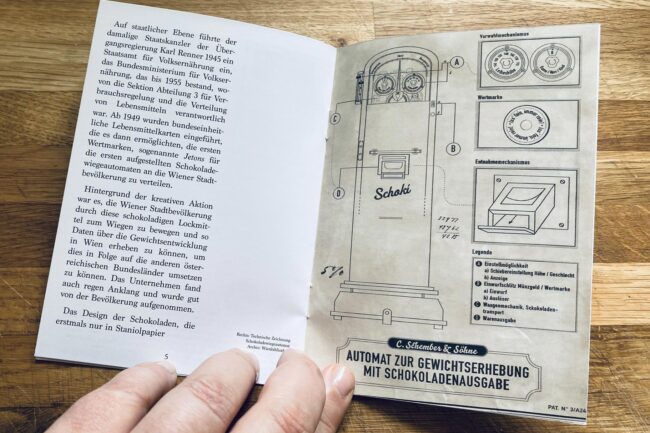 Auf staatlicher Ebene führte der
damalige Staatskanzler der Über-
gangsregierung Karl Renner 1945 ein
Staatsamt für Volksernährung ein,
das Bundesministerium für Volkser-
nährung, das bis 1955 bestand, wo-
von die Sektion Abteilung 3 für Ver-
brauchsregelung und die Verteilung
von Lebensmitteln verantwortlich
war. Ab 1949 wurden bundeseinheit-
liche Lebensmittelkarten eingeführt,
die es dann ermöglichten, die ersten
Wertmarken, sogenannte Jetons für
die ersten aufgestellten Schokolade-
wiegeautomaten an die Wiener Stadt-
bevölkerung zu verteilen.
Hintergrund der kreativen Aktion
war es, die Wiener Stadtbevölkerung
durch diese schokoladigen Lockmit-
tel zum Wiegen zu bewegen und so
Daten über die Gewichtsentwicklung
in Wien erheben zu können, um
dies in Folge auf die anderen öster-
reichischen Bundesländer umsetzen
zu können. Das Unternehmen fand
auch regen Anklang und wurde gut
von der Bevölkerung aufgenommen.
Das Design der Schokoladen, die
erstmals nur in Staniolpapier
5
Rechts: Technische Zeichnung
Schokoladewiegeautomat
Archiv:
A
C
B
D
Schoki
5%
Vorwahlmechanismus
Wertmarke
Entnahmemechanismus
Legende
A Einstellmöglichkeit
a) Schiebereinstellung Höhe / Geschlecht
b) Anzeige
B Einwurfschlitz Münzgeld / Wertmarke
a) Einwurf
b) Auslöser
C Waagenmechanik, Schokoladen-
transport
D Warenausgabe
C. Sthember & Söhne
AUTOMAT ZUR GEWICHTSERHEBUNG
MIT SCHOKOLADENAUSGABE
PAT. N° 3/A24